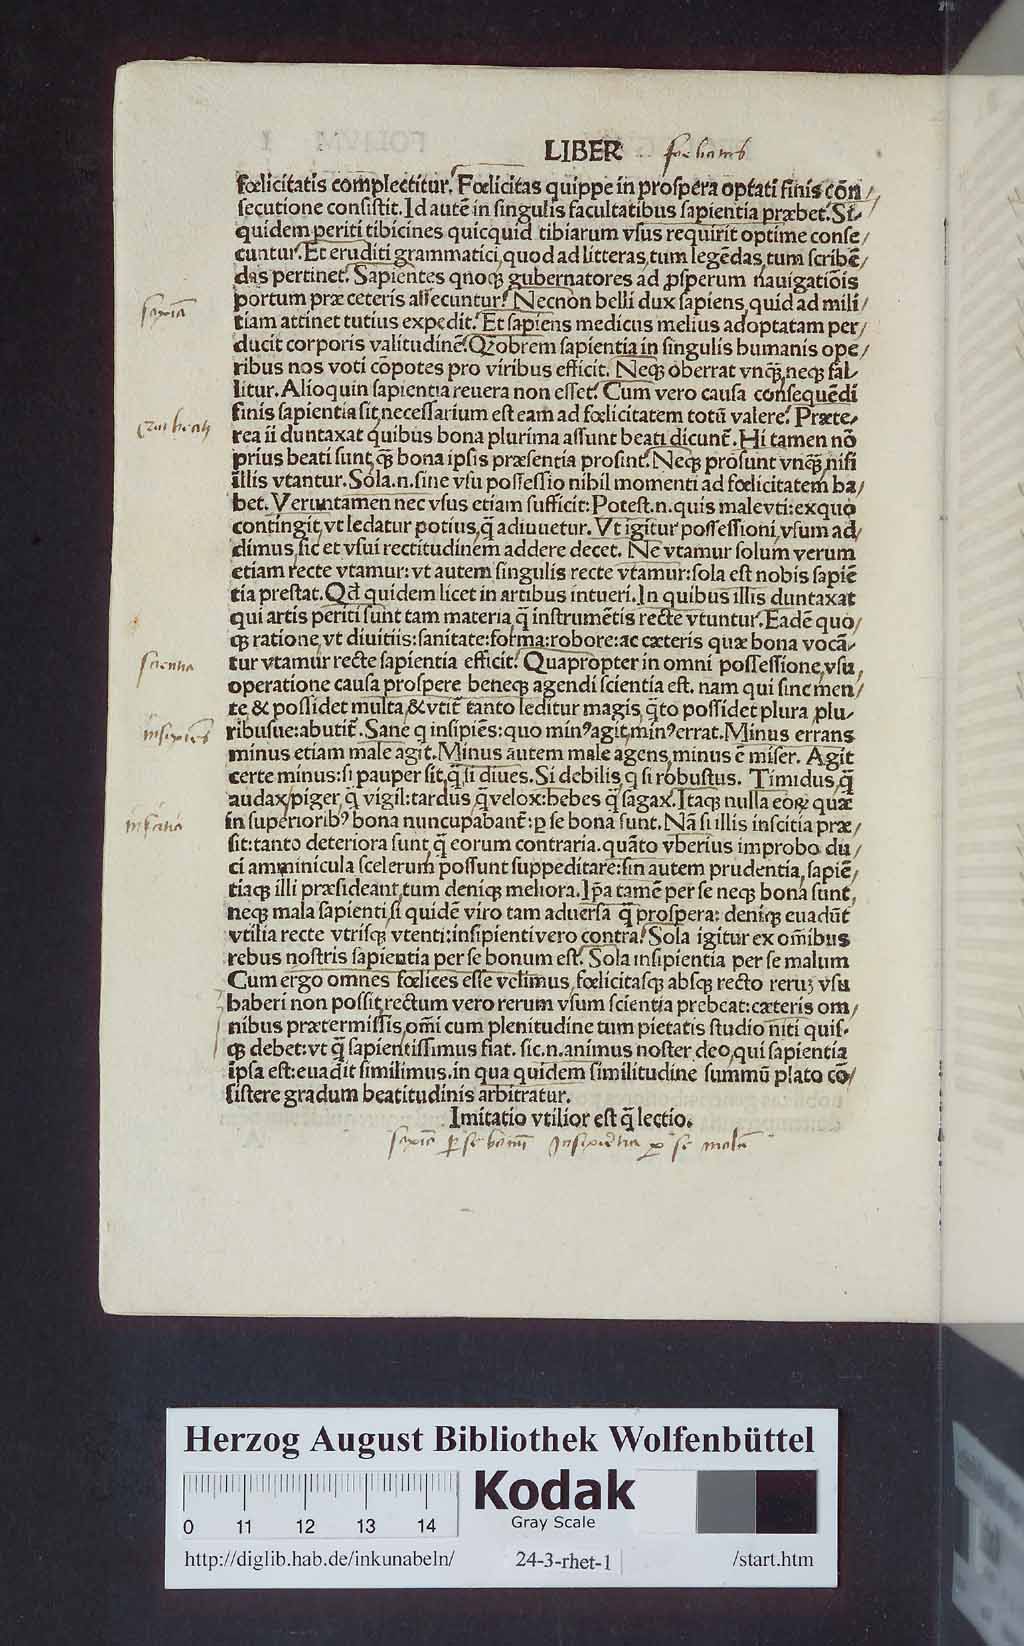 LIBER
fœlicitatis complectitur. Fœlicitas quippe in prospera optati finis cōn/
secutione consistit. Id autē in singulis facultatibus sapientia præbet. Si-
quidem periti tibicines quicquid tibiarum vsus requirit optime conse/
cuntur. Et eruditi grammatici, quod ad litteras, tum legēdas, tum scribē/
das pertinet. Sapientes qnoqꝫ gubernatores ad ꝓsperum nauigatiōis
portum præ ceteris assecuntur. Necnon belli dux sapiens, quid ad mili/
sapiētia
tiam attinet tutius expedit. Et sapiens medicus melius adoptatam per/
ducit corporis valitudinē. Qꝛobrem sapientia in singulis humanis ope/
ribus nos voti cōpotes pro viribus efficit. Neqꝫ oberrat vnqꝫ̄, neqꝫ fal-
litur. Alioquin sapientia reuera non esset. Cum vero causa consequēdi
finis sapientia sit, necessarium est eam ad fœlicitatem totū valere. Præte-
Qui beati
rea ii duntaxat quibus bona plurima assunt beati dicunt̄. Hi tamen nō
prius beati sunt, qꝫ̄ bona ipsis præsentia prosint. Neqꝫ prosunt vnqꝫ̄, nisi
illis vtantur. Sola .n. sine vsu possessio nihil momenti ad fœlicitatem ha/
bet. Veruntamen nec vsus etiam sufficit: Potest .n. quis male vti: ex quo
contingit, vt ledatur potius, q̄ adiuuetur. Vt igitur possessioni, vsum ad/
dimus, sic et vsui rectitudinem addere decet. Ne vtamur solum verum
etiam recte vtamur: vt autem singulis recte vtamur: sola est nobis sapiē
tia prestat. Qd̄ quidem licet in artibus intueri. In quibus illis duntaxat
qui artis periti sunt tam materia, q̄ instrumētis recte vtuntur. Eadē quo/
qꝫ ratione, vt diuitiis: sanitate: forma: robore: ac cæteris quæ bona vocā-
scientia
tur vtamur recte sapientia efficit. Quapropter in omni possessione, vsu,
operatione causa prospere beneqꝫ agendi scientia est. nam qui sine men/
te & possidet multa, & vtit̄ tanto leditur magis, q̄to possidet plura, plu-
insipiēs
ribusue: abutit̄. Sane q insipiēs: quo minꝰ agit, minꝰ errat. Minus errans
minus etiam male agit. Minus autem male agens, minus ē miser. Agit
certe minus: si pauper sit, q̄ si diues. Si debilis, q si robustus. Timidus, q̄
audax, piger, q̄ vigil: tardus, q̄ velox: hebes q̄ sagax. Itaqꝫ nulla eoꝝ quæ
inscitia
in superioribꝰ bona nuncupabant̄: ꝑ se bona sunt. Nā si illis inscitia præ/
sit: tanto deteriora sunt, q̄ eorum contraria. quāto vberius improbo du/
ci amminicula scelerum possunt suppeditare: sin autem prudentia, sapiē/
tiaqꝫ illi præsideant, tum deniqꝫ meliora. Ip̄a tamē per se neqꝫ bona sunt,
neqꝫ mala sapienti, si quidē viro tam aduersa q̄ prospera: deniqꝫ euadūt
vtilia recte vtrisqꝫ vtenti: insipienti vero contra. Sola igitur ex om̄ibus
rebus nostris sapientia per se bonum est. Sola insipientia per se malum
Cum ergo omnes fœlices esse velimus, fœlicitasqꝫ absqꝫ recto reruꝫ vsu
haberi non possit, rectum vero rerum vsum scientia prebeat: cæteris om/
nibus prætermissis, om̄i cum plenitudine tum pietatis studio niti quis-
qꝫ debet: vt q̄ sapientissimus fiat. sic .n. animus noster deo, qui sapientia
ipsa est: euadit similimus. in qua quidem similitudine summū plato cō/
sistere gradum beatitudinis arbitratur.
Imitatio vtilior est q̄ lectio.
sapiētia ꝑ se bonū Insipiētia ꝑ se malū
Herzog August Bibliothek Wolfenbüttel
0 11 12 13 14
Kodak
Gray Scale
http://diglib.hab.de/inkunabeln/ 24-3-rhet-1 /start.htm